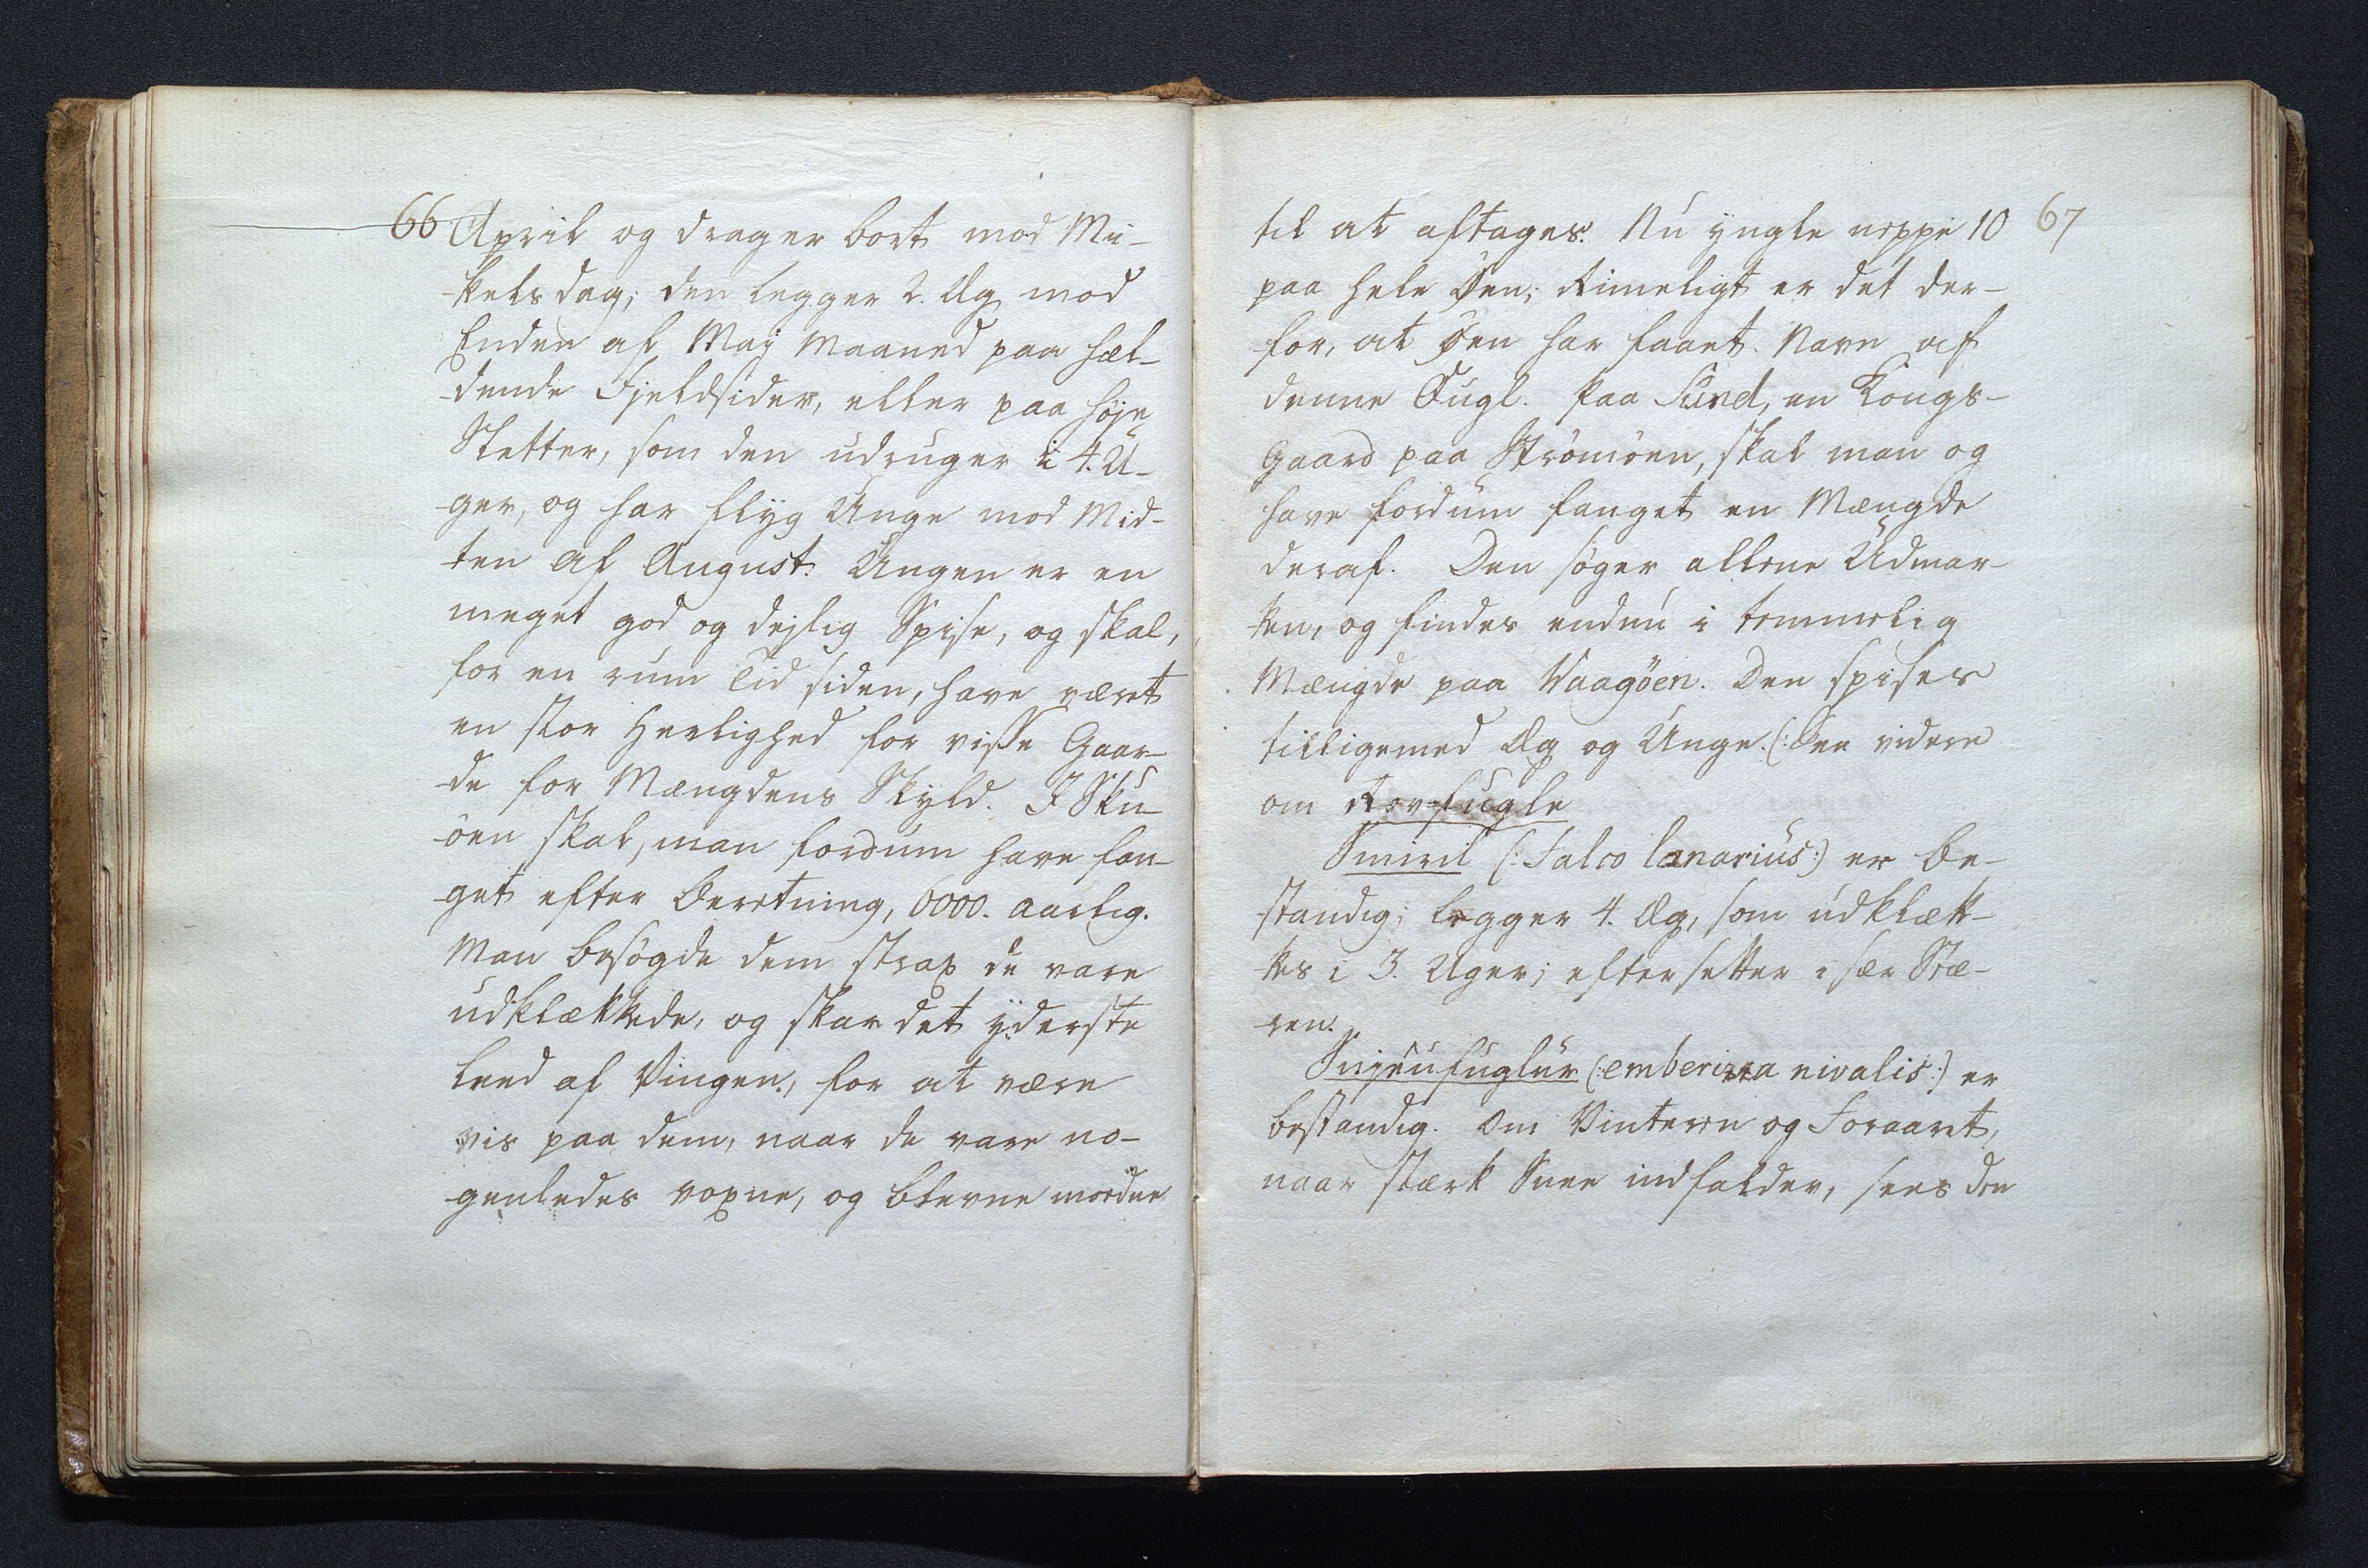 66 April og drager bort mod Mi-
kelsdag; den legger 2. Æg mod
Enden af Maÿ Maaned paa hæl-
dende Fjeldsider, eller paa høje
Sletter, som den udruger i 4. U-
ger, og har flÿg Unge mod Mid-
ten af August. Ungen er en
meget god og dejlig Spise, og skal,
for en rum Tid siden, have været
en stor Herlighed for visse Gaar-
de for Mængdens Skÿld. I Sku-
öen skal, man fordum have fan-
get efter Beretning, 6000. aarlig.
Man besøgde dem strax de vare
udklækkede, og skar det ÿderste
Leed af Vingen, for at være
vis paa dem, naar de vare no-
genledes voxne, og blevne modne
til at aftages. Nu ÿngle neppe 10 67
paa hele Øen; Rimeligt er det der-
for, at Øen har faaet Navn af
denne Fugl. Paa Sund, en Kongs-
Gaard paa Strömöen, skal man og
have fordum fanget en Mængde
deraf. Den søger allene Udmar-
ken, og findes endnu i temmelig
Mængde paa Waagöen. Den spises
tilligemed Æg og Unge. (: See videre
om Rovfugle
Smiril (: Falco lanarius:) er be-
standig; legger 4. Æg, som udklæk-
kes i 3. Uger; eftersetter i sær Stæ-
ren.
Snjeufuglur (: emberizza nivalis:) er
bestandig. Om Vinteren og Foraaret,
naar stærk Snee indfalder, sees den